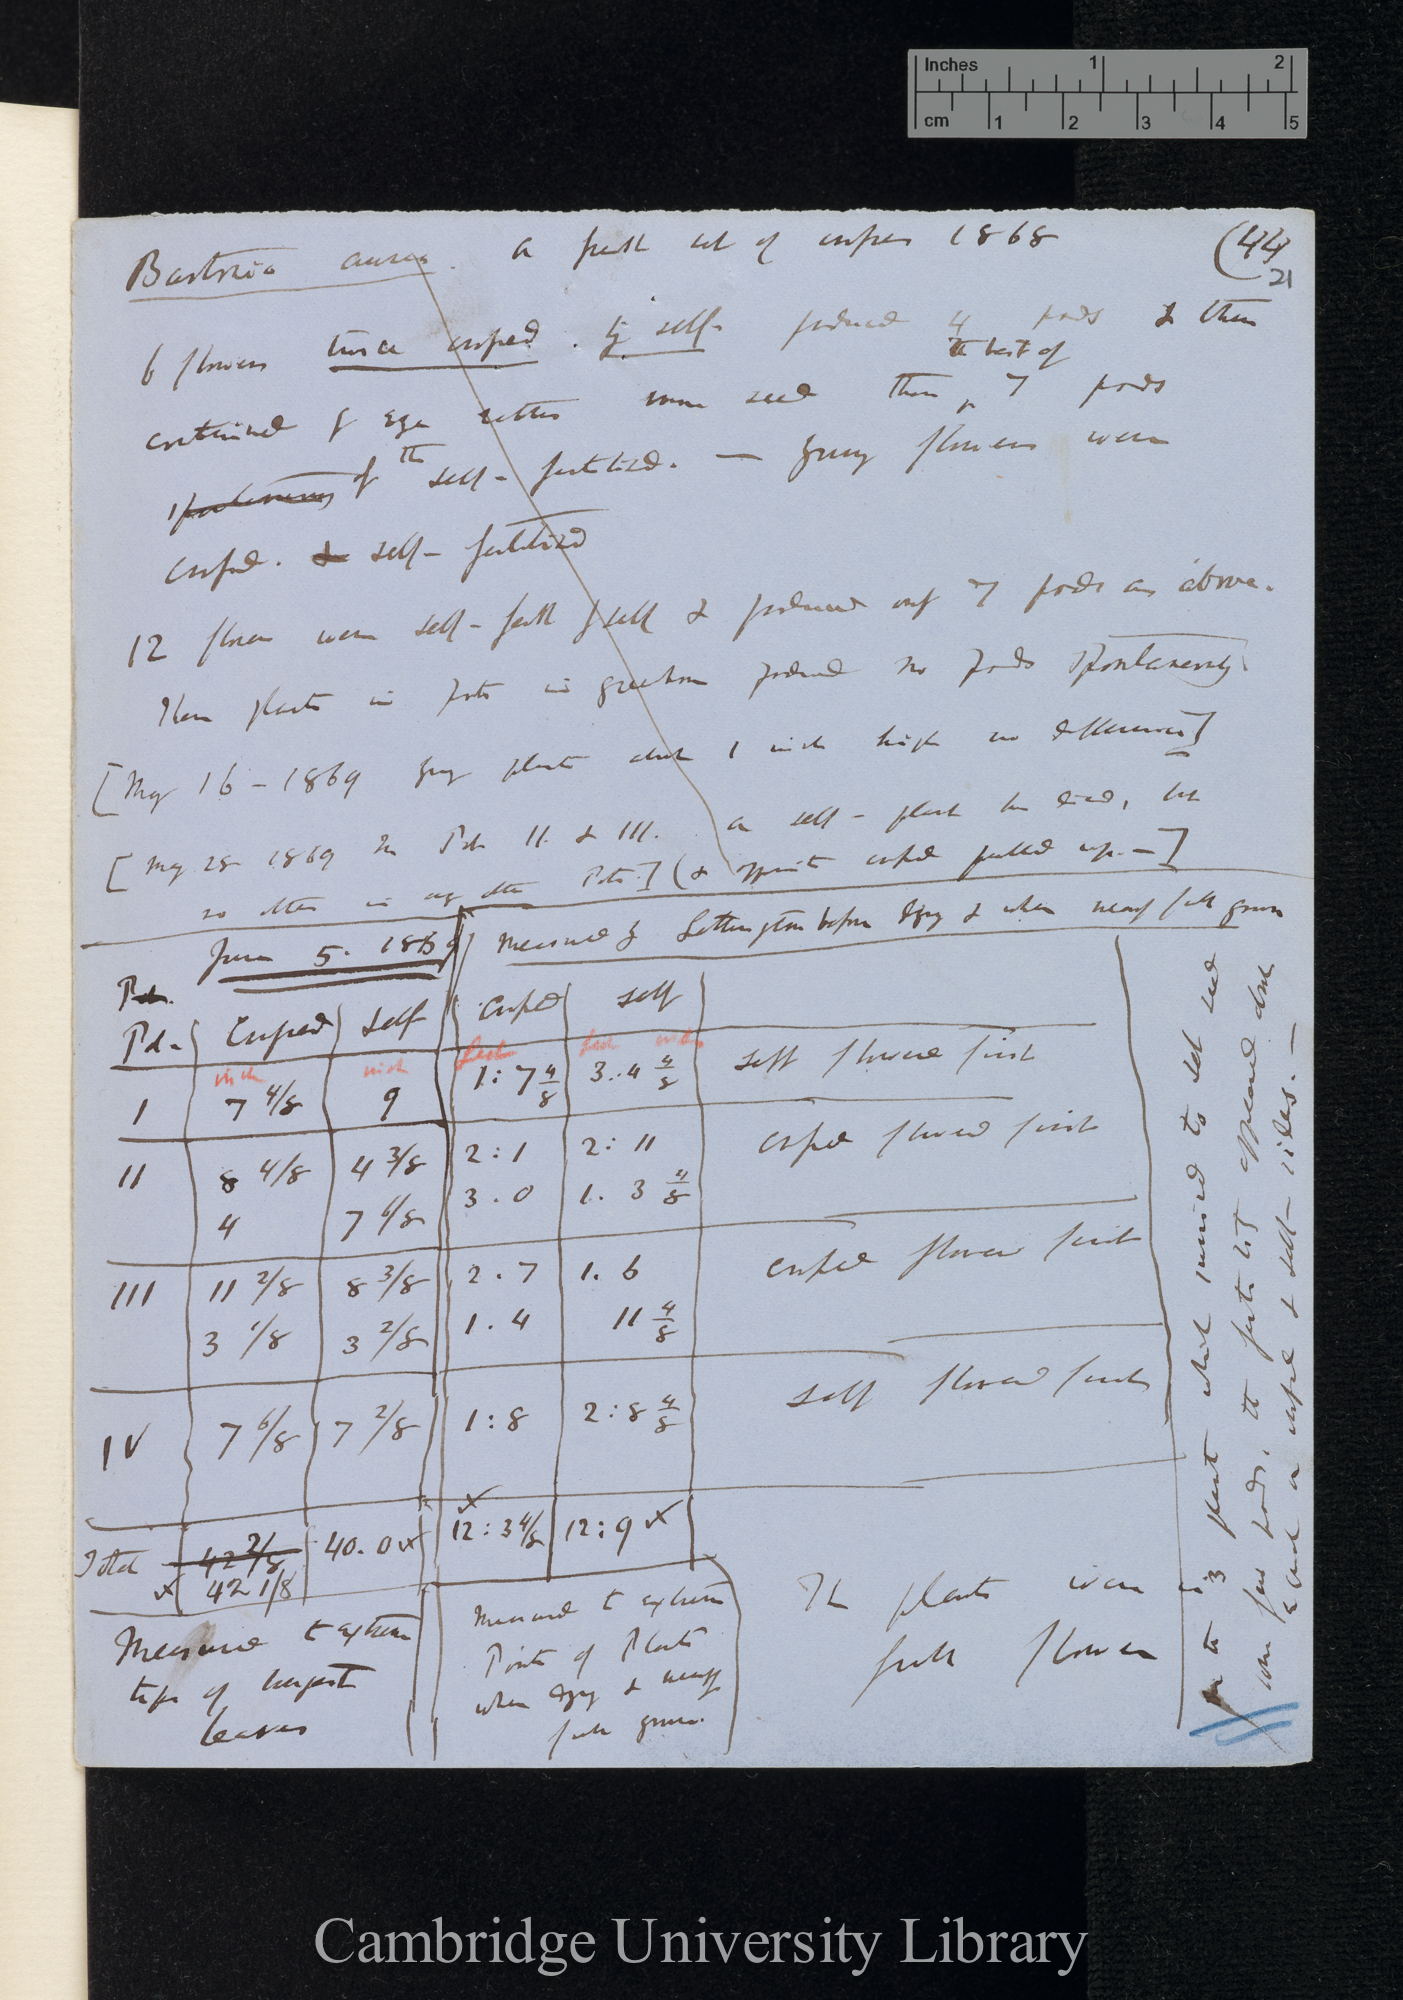 Inches 1 2
cm 1 2 3 4 5
Bartonia aurea. a fresh set of crosses 1868 (44
21
6 flowers twice crossed. by self- produced 4 pods & these
the best of
contained if eye better more seed than in 7 pods
of the self-fertilized. — young flowers were
crossed. & self-fertilised
12 flowers were self-fert by self & produced only 7 pods as above.
These plants in pots in greenhouse produced no pods spontaneously.
[May 16 - 1869 young plants about 1 inch high no difference]
[May 28 1869 In Pots II. & III. a self-plant has died, but
no others in any other Pots.] (& opposite crossed pulled up.—]
June 5. 1869 Measured by before & when nearly full grown
Pot. Crossed Self Crossed Self
inch inch feet feet inches
I 7 4/8 9 1:7 4/8 3:4 4/8 self flowered first
II 8 4/8 4 3/8 2:1 2:11 crossed flowered first
4 7 6/8 3.0 1.3 4/8
III 11 2/8 8 3/8 2.7 1.6 crossed flowered first
3 1/8 3 2/8 1.4 11 4/8
IV 7 6/8 7 2/8 1:8 2:8 4/8 self flowered first
Total 42 2/8 40.0 x 12:3 4/8 12:9 x
x 42 1/8
Measured to extreme
tips of longest
leaves
Measured to extreme
Points of Plants
when & nearly
full grown.
The plants were in
full flower
in the 3 plants which seemed to set seed
were few pods, the parts left appeared about
equal on crossed & self-sides. —
Cambridge University Library